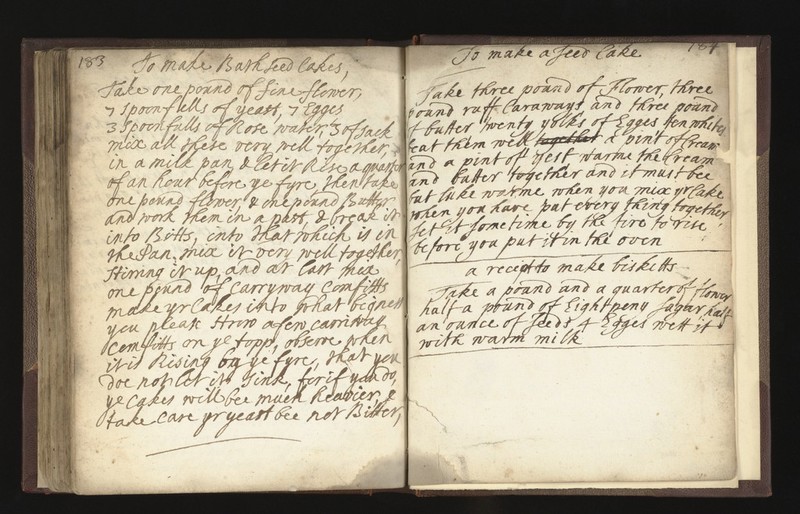 183
To make Bath seed Cakes,
Take one pound of fine flower,
7 Spoonfulls of yeast, 7 Egges
3 Spoonfulls of Rose water, 3 of sack
mix all these very well together,
in a milk pan, & let it Rise a quarter
of an hour before ye fyre, then take
one pound flower, & one pound Butter
and work them in a past, & break it
into Bitts, into that which is in
the Pan, mix it very well together,
stirring it up, and at last mix
one pound of Carryway Comfitts
make yr Cakes into what bigness
you pleas strow a few carriway
Comfitts on ye topp, observe when
it is Rising by ye fyre, that you
doe not let it sink, for if you do,
ye Cakes will bee much heavier, &
take care yr yeast bee not Bitter,
184
To make a seed Cake
Take three pound of Flower, three
pound ruff Caraways and three pound
of butter twenty yolks of Egges ten whites
beat them well together a pint of Cream
and a pint of yest warme the Cream
and butter together and it must bee
but luke warme when you mix yr Cake
when you have put every thing together
set it some time by the fire to rise
before you put it in the oven
a receit to make biskitts
Take a pound and a quarter of flower
half a pound of Eightpeny sugar half
an ounce of seeds 4 Egges wett it
with warm milk